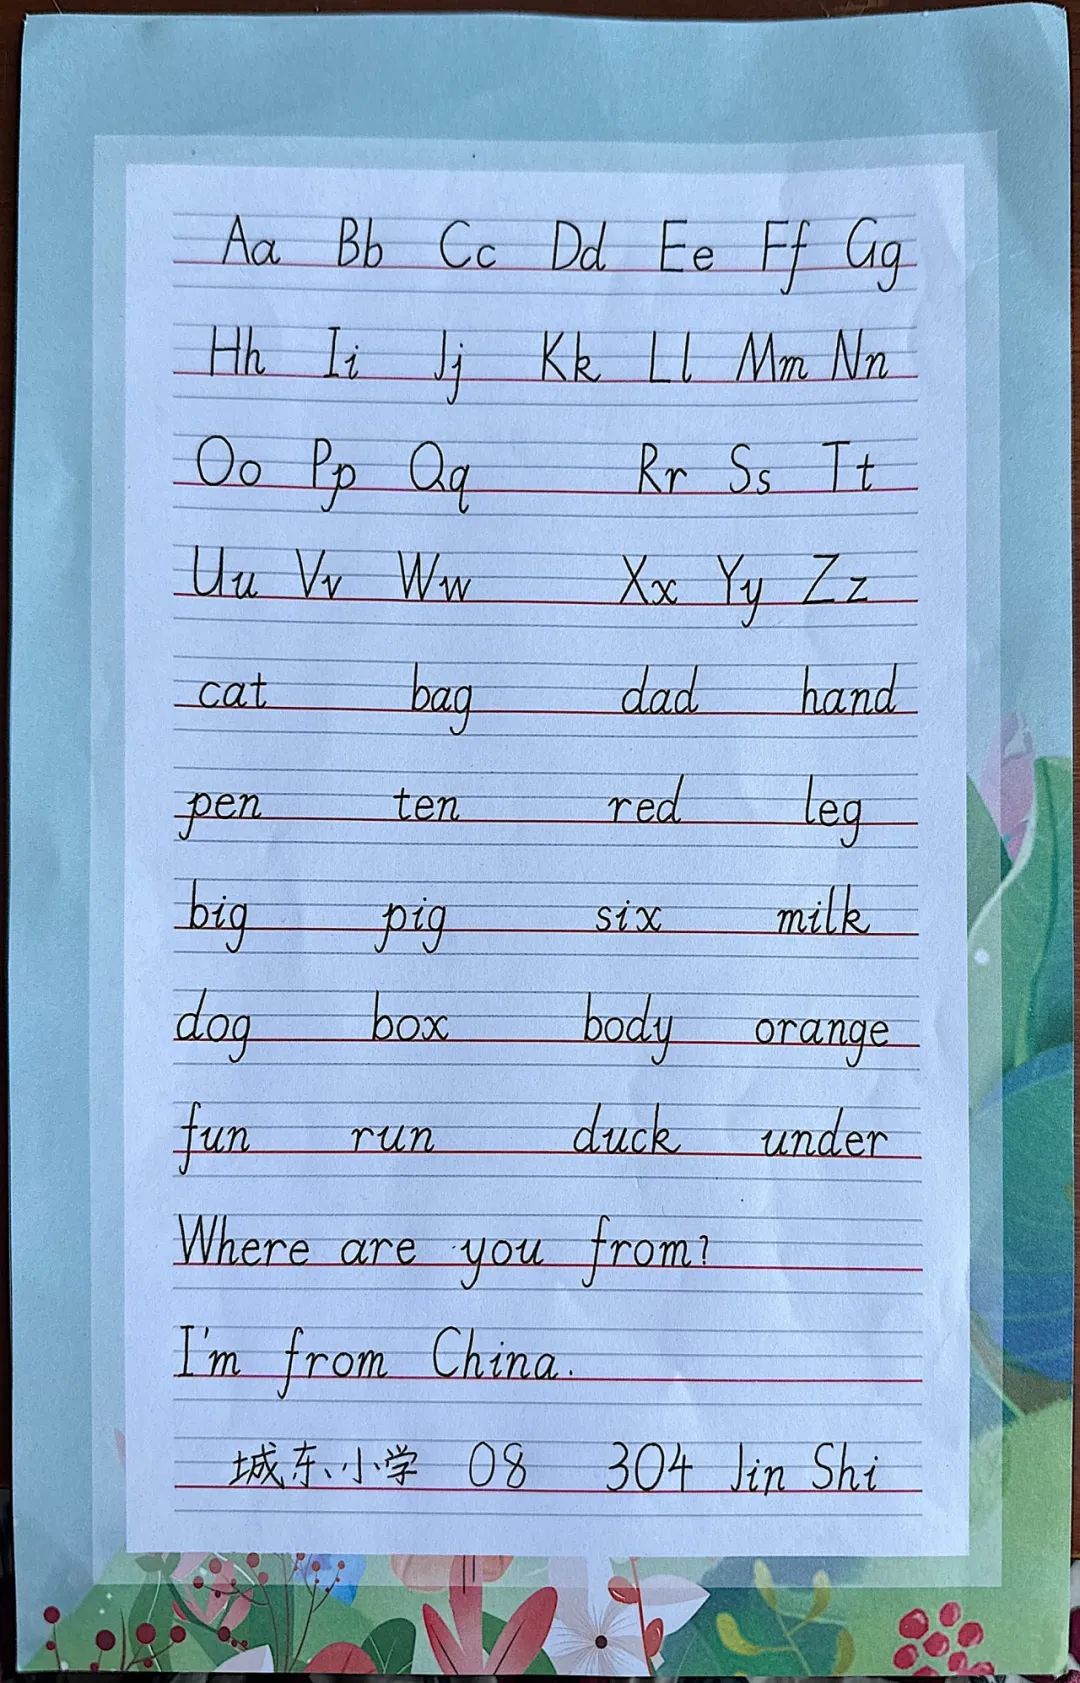 Aa Bb Cc Dd Ee Ff Gg
Hh Ii Jj Kk Ll Mm Nn
Oo Pp Qq Rr Ss Tt
Uu Vv Ww Xx Yy Zz
cat bag dad hand
pen ten red leg
big pig six milk
dog box body orange
fun run duck under
Where are you from?
I'm from China.
城东小学 08 304 Jin Shi